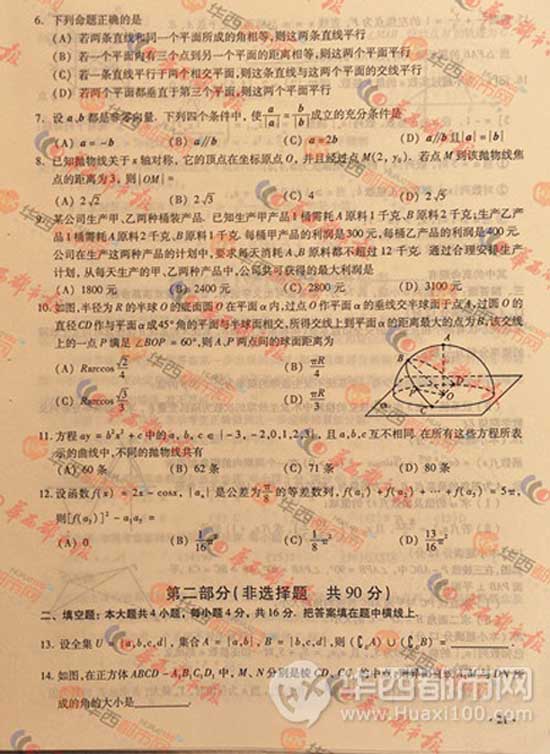 6. 下列命题正确的是
(A) 若两条直线和同一个平面所成的角相等,则这两条直线平行
(B) 若一个平面内有三个点到另一个平面的距离相等,则这两个平面平行
(C) 若一条直线平行于两个相交平面,则这条直线与这两个平面的交线平行
(D) 若两个平面都垂直于第三个平面,则这两个平面平行
7. 设 a、b 都是非零向量. 下列四个条件中,使 a/|a| = b/|b| 成立的充分条件是
(A) a = -b (B) a∥b (C) a = 2b (D) a∥b 且 |a| = |b|
8. 已知抛物线关于 x 轴对称,它的顶点在坐标原点 O,并且经过点 M(2, y₀). 若点 M 到该抛物线焦
点的距离为 3, 则 |OM| =
(A) 2√2 (B) 2√3 (C) 4 (D) 2√5
9. 某公司生产甲、乙两种桶装产品. 已知生产甲产品 1 桶需耗 A 原料 1 千克、B 原料 2 千克; 生产乙产
品 1 桶需耗 A 原料 2 千克、B 原料 1 千克. 每桶甲产品的利润是 300 元,每桶乙产品的利润是 400 元.
公司在生产这两种产品的计划中,要求每天消耗 A、B 原料都不超过 12 千克. 通过合理安排生产
计划,从每天生产的甲、乙两种产品中,公司共可获得的最大利润是
(A) 1800 元 (B) 2400 元 (C) 2800 元 (D) 3100 元
10. 如图,半径为 R 的半球 O 的底面圆 O 在平面 α 内,过点 O 作平面 α 的垂线交半球面于点 A,过圆 O 的
直径 CD 作与平面 α 成 45° 角的平面与半球面相交,所得交线上到平面 α 的距离最大的点为 B,该交线
上的一点 P 满足 ∠BOP = 60°,则 A、P 两点间的球面距离为
(A) Rarccos √2/4 (B) πR/4
(C) Rarccos √3/3 (D) πR/3
A
B
P
D
O
C
α
11. 方程 ay = b²x² + c 中的 a, b, c ∈ {-3, -2, 0, 1, 2, 3}, 且 a, b, c 互不相同. 在所有这些方程所表
示的曲线中,不同的抛物线共有
(A) 60 条 (B) 62 条 (C) 71 条 (D) 80 条
12. 设函数 f(x) = 2x - cosx, {aₙ} 是公差为 π/8 的等差数列, f(a₁) + f(a₂) + ⋯ + f(a₅) = 5π,
则 [f(a₃)]² - a₁a₅ =
(A) 0 (B) 1/16 π² (C) 1/8 π² (D) 13/16 π²
第二部分(非选择题 共 90 分)
二、填空题: 本大题共 4 小题, 每小题 4 分, 共 16 分. 把答案填在题中横线上.
13. 设全集 U = {a, b, c, d}, 集合 A = {a, b}, B = {b, c, d}, 则 (∁ᵤA) ∪ (∁ᵤB) = ______.
14. 如图,在正方体 ABCD - A₁B₁C₁D₁ 中, M、N 分别是棱 CD、CC₁ 的中点,
成的角的大小是______.
华西都市网
www.Huaxi100.com
· 21 ·